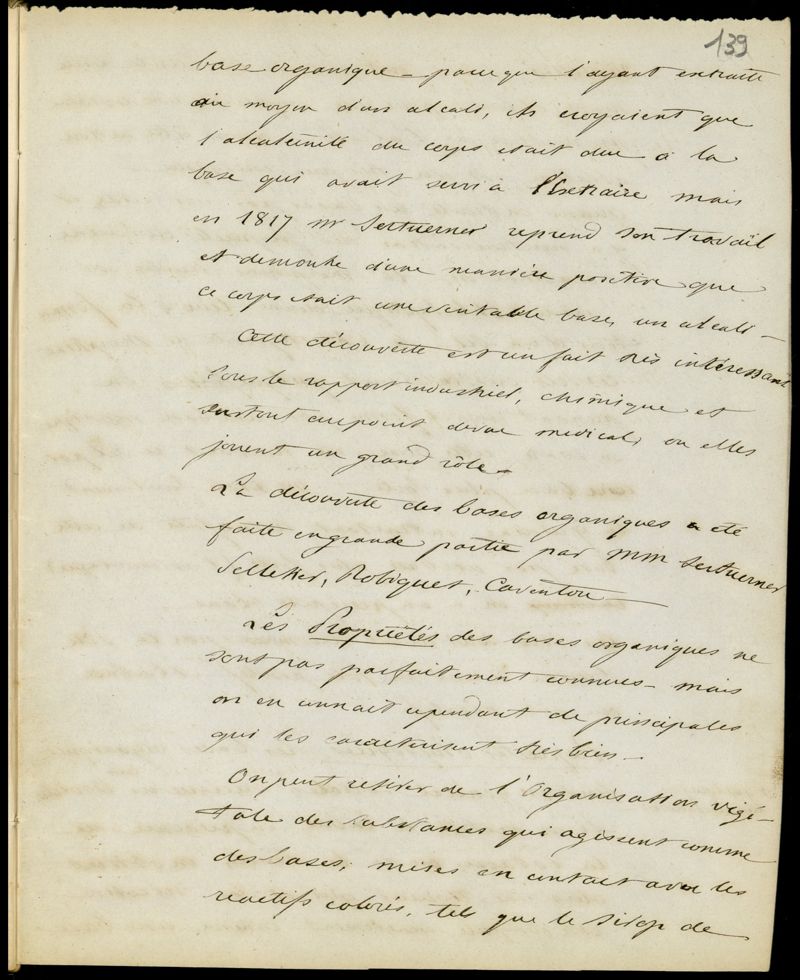 139
base organique – parceque l'ayant extraite
au moyen d'un alcali, ils croyaient que
l'alcalinité du corps était due à la
base qui avait servi à l'Extraire mais
en 1817 mr Sertuerner reprend son travail
et démontre d'une manière positive que
ce corps était une véritable base, un alcali –
Cette découverte est un fait très intéressant
sous le rapport industriel, chimique et
surtout au point de vue medical, ou elles
jouent un grand rôle –
La découverte des bases organiques a été
faite en grande partie par MM Sertuerner
Pelletier, Robiquet, Caventou
Les Propriétés des bases organiques ne
sont pas parfaitement connues – mais
on en connait cependant de principales
qui les caractérisent très bien –
On peut retirer de l'Organisation végé-
tale des substances qui agissent comme
des bases; mises en contact avec les
reactifs colorés, tels que le sirop de